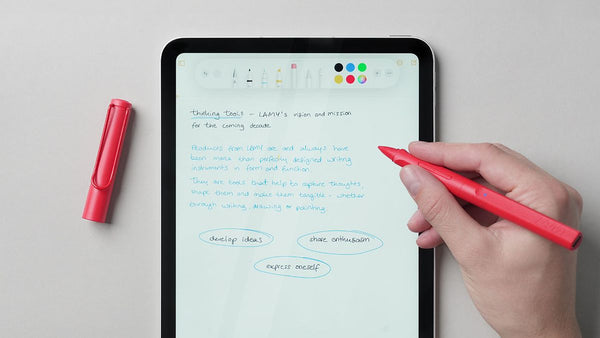 thinking tools - LAMY's vision and mission
for the coming decade
Products from LAMY are and always have
been more than perfectly designed writing
instruments in form and function.
They are tools that help to capture thoughts,
shape them and make them tangible - whether
through writing, drawing or painting.
develop ideas
share enthusiasm
express oneself